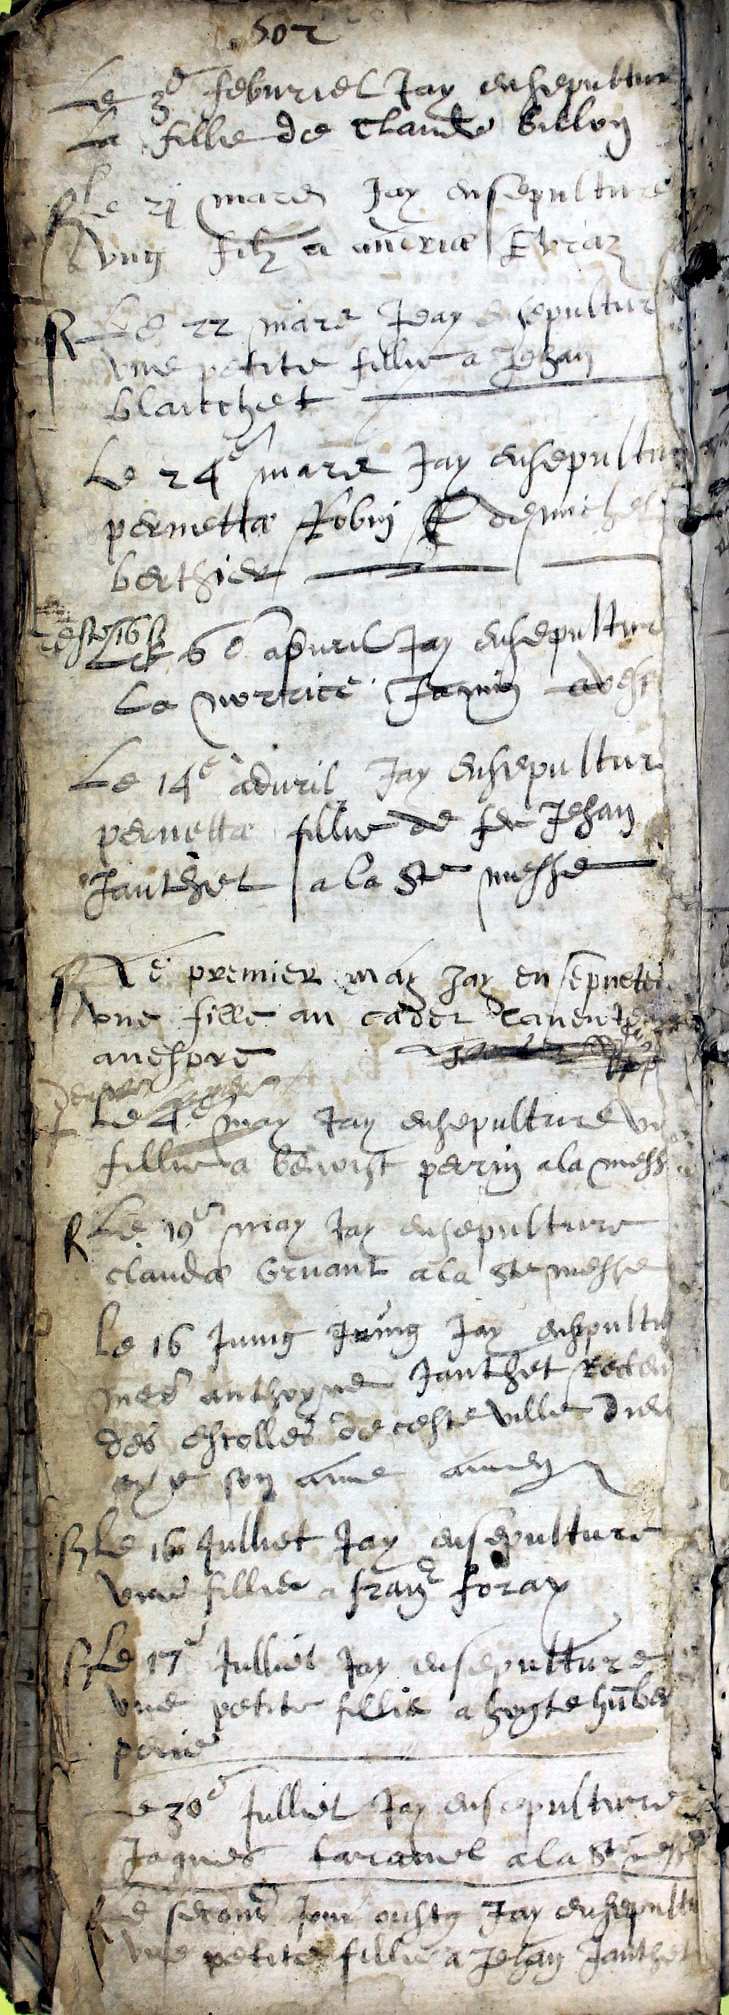 502
Le 3e febvriel Jay ensepultur
La fillie de Claude billon
R Le 21 mars Jay ensepulture
ung filz a
R Le 22 mars Jeay ensepultur
une petite fillie a Jehan
blanchet
Le 24e mars Jay ensepultu
pernetta Robin de michel
berthier
Le 6e apvril Jay ensepultur
La norrice Janin
Le 14e advril Jay ensepultur
pernetta fillie de feu Jehan
Janthet a la Ste messe
R Le premier may Jay en
une fille au cadet
Le 4e may Jay ensepulture un
fillie a benoist perrin a la mess
R Le 19e may Jay ensepulture
clauda Gruant a la Ste messe
Le 16 Juing Jay ensepultu
anthoyne Janthet
des escolles de ceste ville Dieu
aye son ame amen
R Le 16 Julliet Jay ensepulture
une fillie a foray
R Le 17e Julliet Jay ensepulture
une petite fillie a
Le 30e Julliet Jay ensepulture
Jaques a la Ste mess
R Le second jour Jay ensepultu
une petite fillie a Jehan Janthet